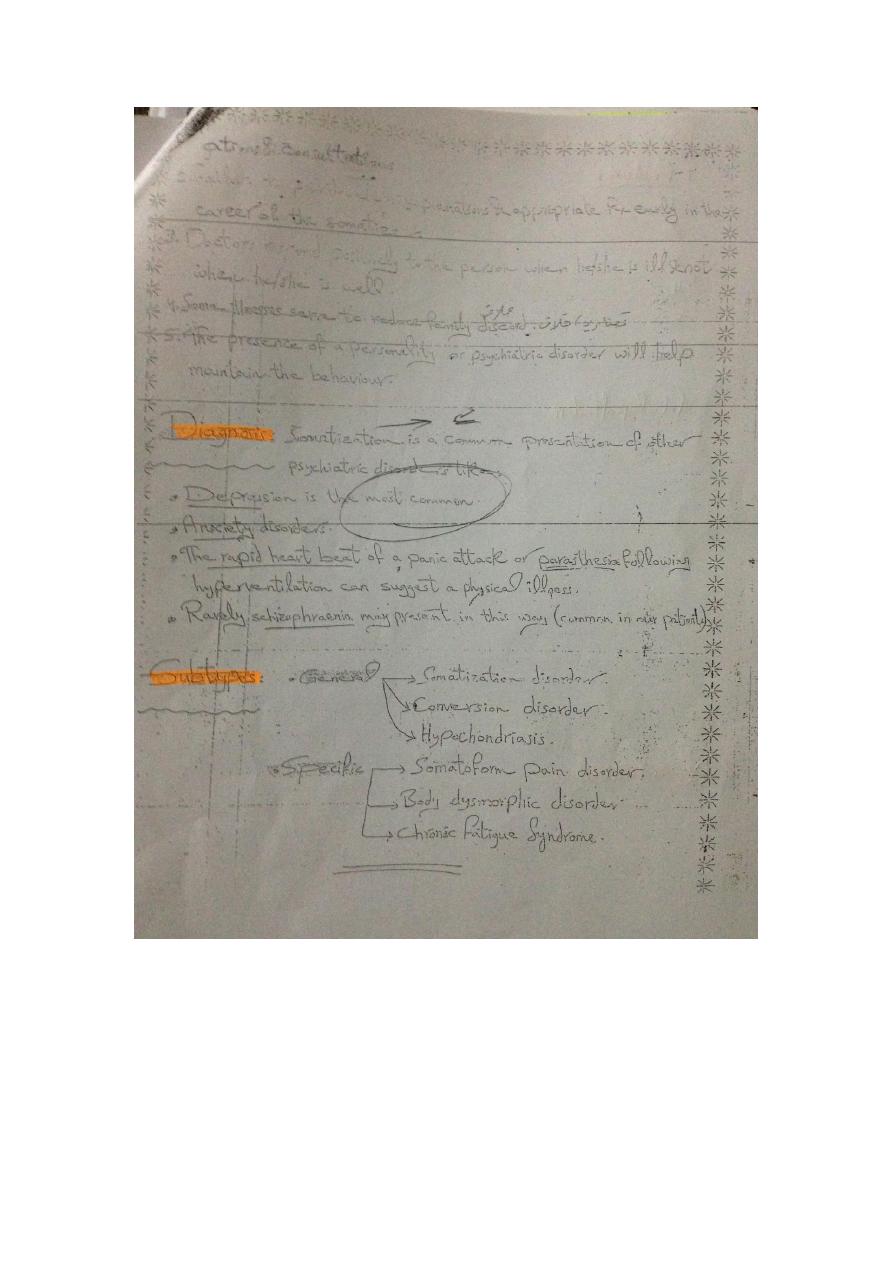 gations & consultations
explanations & appropriate Rx early in the
career of the somatizer.
3. Doctors respond positively to the person when he/she is ill & not
when he/she is well.
4. Some illnesses serve to reduce family discord.
5. The presence of a personality or psychiatric disorder will help
maintain the behaviour.
Diagnosis Somatization is a common presentation of other
psychiatric disorders like
• Depression is the most common.
• Anxiety disorders.
• The rapid heart beat of a panic attack or parasthesia following
hyperventilation can suggest a physical illness.
• Rarely schizophraenia may present in this way (common in our patients)
Subtypes: • General → Somatization disorder.
→ Conversion disorder.
→ Hypochondriasis.
• Specific → Somatoform pain disorder.
→ Body dysmorphic disorder
→ Chronic Fatigue Syndrome.